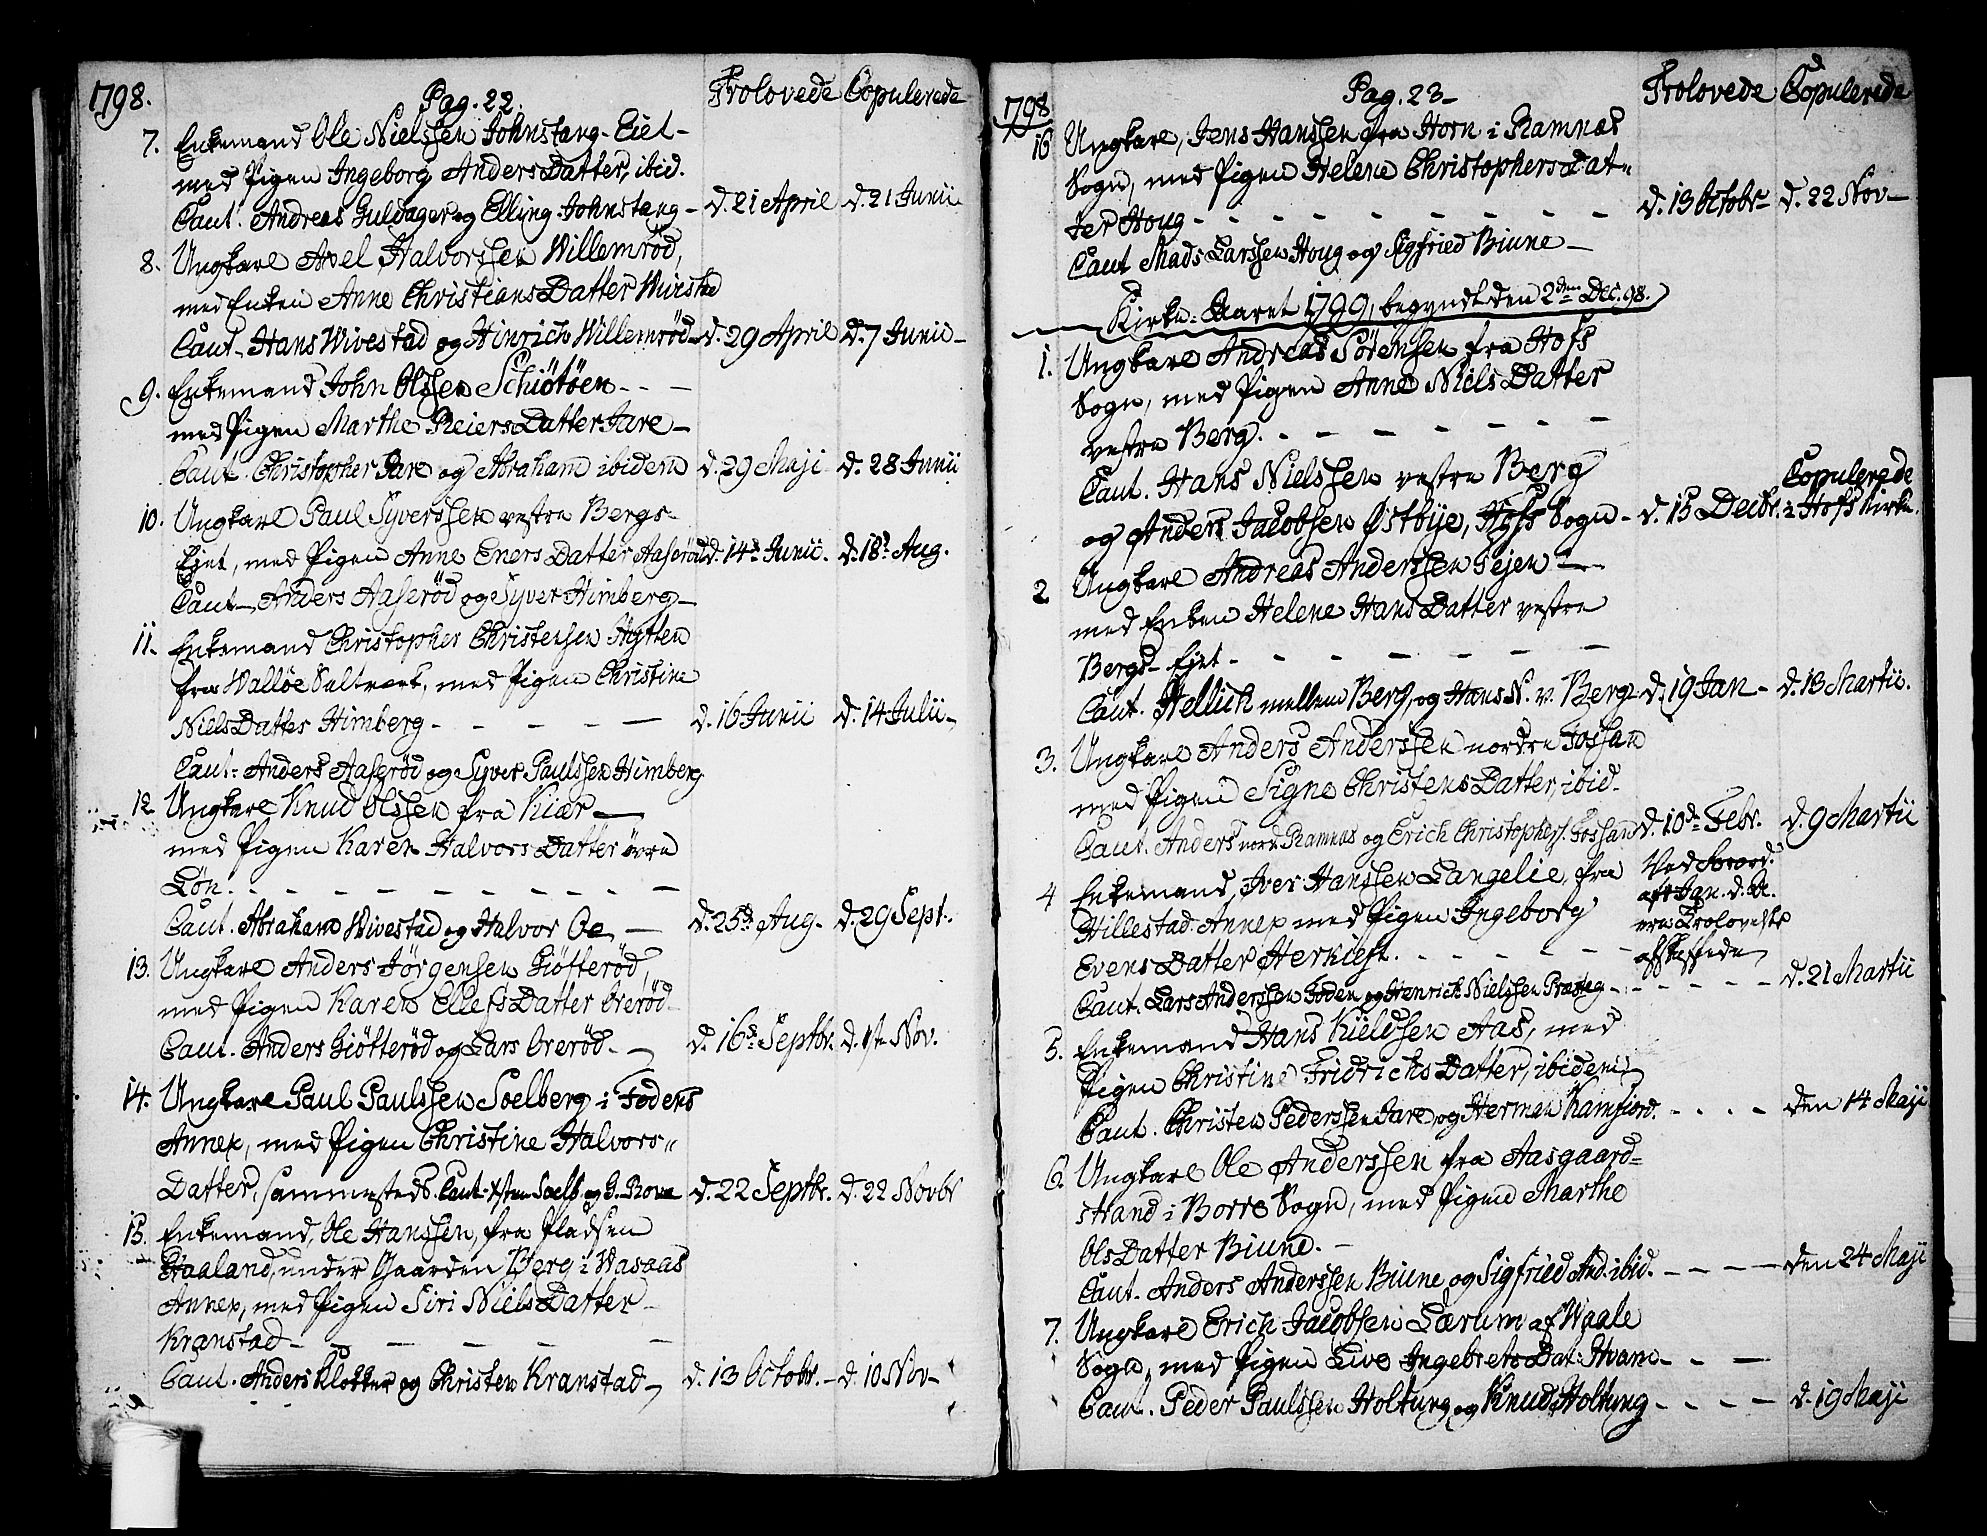 1798.
Pag. 22.
Trolovede
Copulerede
7. Enkemand Ole Nielssen Johnstang-Eiet-
med Pigen Ingeborg Anders Datter, ibid.
Caut. Andreas Guldager og Elling Johnstang - d. 21 April d. 21 Junii
8. Ungkarl Axel Halvorssen Willemrød,
med Enken Anne Christians Datter Wivestad
Caut. Hans Wivestad og Hinrich Willemrød - d. 29 April d. 7 Junii -
9. Enkemand John Olssen Schiøtøen - - -
med Pigen Marthe Reiers Datter Jare -
Caut. Christopher Jare og Abraham ibidem d. 29 Maji d. 28 Junii
10. Ungkarl Paul Syverssen vestre Bergs-
Ejet, med Pigen Anne Eners Datter Aaserød d. 14d Junii. d. 18d Aug.
Caut - Anders Aaserød og Syver Himberg -
11. Enkemand Christopher Christensen Hytten
fra Walløe Saltverk, med Pigen Christine
Niels Datter Himberg - - - - - d. 16 Junii d. 14 Julii -
Caut: Anders Aaserød og Syver Paulssen Himberg
12 Ungkarl Knud Olssen fra Kiær -
med Pigen Karen Halvors Datter øvre
Løn. - - - - - - - - - -
Caut. Abraham Wivestad og Halvor Oe - d. 25d Aug. d. 29 Sept.
13. Ungkarl Anders Jørgensen Giøtterød,
med Pigen Karen Ellefs Datter Ørerød
Caut. Anders Giøtterød og Lars Ørerød - d. 16d Septbr. d. 1ste Nov.
14. Ungkarl Paul Paulssen Soelberg i Fodens
Annex, med Pigen Christine Halvors"
Datter, sammesteds. Caut. Xsten Soelb. og G. Rove d. 22 Septbr. d. 22 Novbr
15. Enkemand, Ole Hanssen, fra Pladsen
Haaland, under Gaarden Berg i Wasaas
Annex, med Pigen Siri Niels Datter
Kranstad - - - - - -
Caut. Anders Klokker og Christen Kranstad - d. 13 Octobr. - d. 10 Nov -
1798
Pag. 23 -
Trolovede
Copulerede
16 Ungkarl, Jens Hanssen fra Horn i Ramnæs
Sogn, med Pigen Helene Christophers Dat"
ter Houg - - - - - - - - - d. 13 Octobr - d. 22 Nov -
Caut Mads Larssen Houg og Sigfried Biune -
Kirke-Aaret 1799, begyndt den 2den Dec. 98.
1. Ungkarl Andreas Sørensen fra Hofs
Sogn, med Pigen Anne Niels Datter
vestre Berg. - - - - - - -
Caut. Hans Nielssen vestre Berg
Copulerede
og Anders Jacobsen Østbye, Hofs Sogn - d. 15 Decbr. i Hofs Kirke.
2 Ungkarl Andreas Anderssen Gejen
med Enken Helene Hans Datter vestre
Bergs-Ejet - - - - - - -
Caut. Hellich mellem Berg, og Hans N. v. Berg - d. 19 Jan - d. 13 Martii.
3. Ungkarl Anders Anderssen nordre Fossan
med Pigen Signe Christens Datter, ibid.
Caut. Anders nord Ramnas og Erich Christophers. Fossan d. 10de Febr. d. 9 Martii
4 Enkemand, Iver Hanssen Langelie, fra
Ved Forord.
af 4 Jan. d. A.
Hillestad Annex med Pigen Ingeborg
ere Trolovelser
Evens Datter Herkiest. - - - - -
afskaffede
Caut. Lars Anderssen Foden og Henrich Nielssen Præsteg - - - - - - d. 21 Martii
5. Enkemand Hans Kieldsen Aas, med
Pigen Christine Fridrichs Datter, ibidem
Caut. Christen Pederssen Jare, og Herman Kamfiord. - - - - den 14 Maji
6. Ungkarl Ole Anderssen fra Aasgaard=
strand i Borre Sogn, med Pigen Marthe
Ols Datter Biune. -
Caut. Anders Anderssen Biune og Sigfried And. ibid. - - - - den 24 Maji
7. Ungkarl Erich Jacobsen Lærum af Waale
Sogn, med Pigen Live Ingebrets Dat: Hvam - - -
Caut. Peder Paulssen Holtung og Knud Holtung - - - - d. 19 Maji